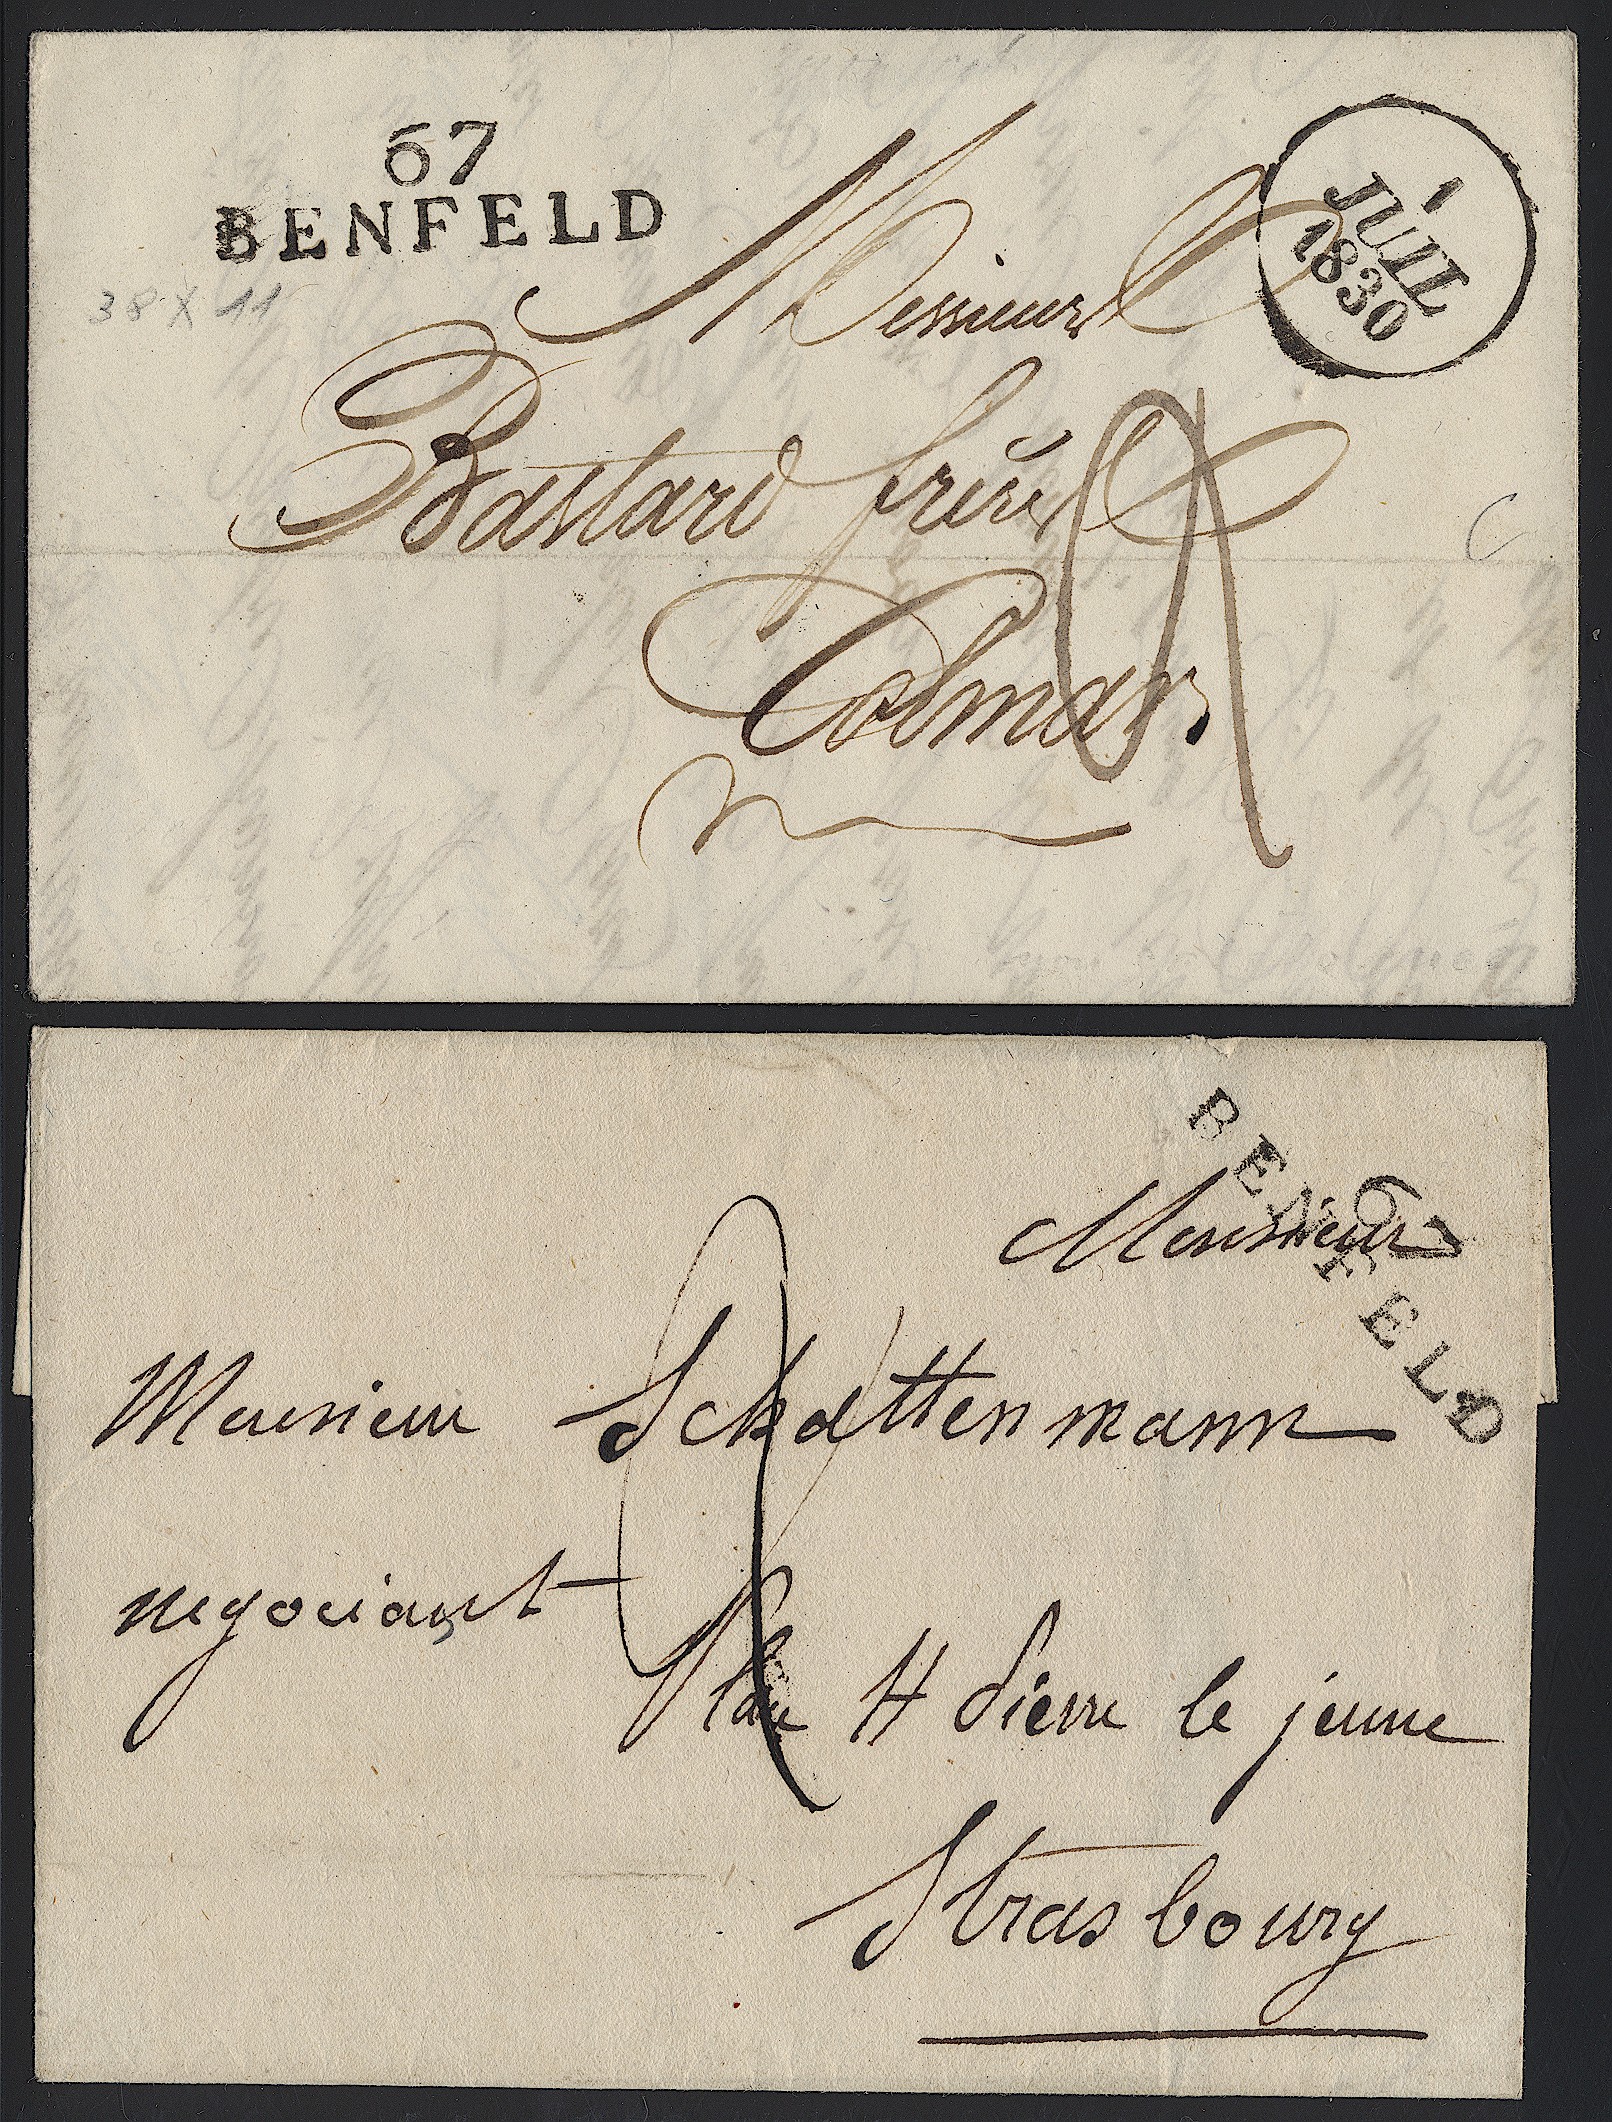 67
BENFELD
1
JUIL
1830
38 X 11
Messieurs
Bastard frères
Colmar.
2
67
BENFELD
Monsieur
Monsieur Schattenmann
negociant
2
Place St Pierre le jeune
Strasbourg